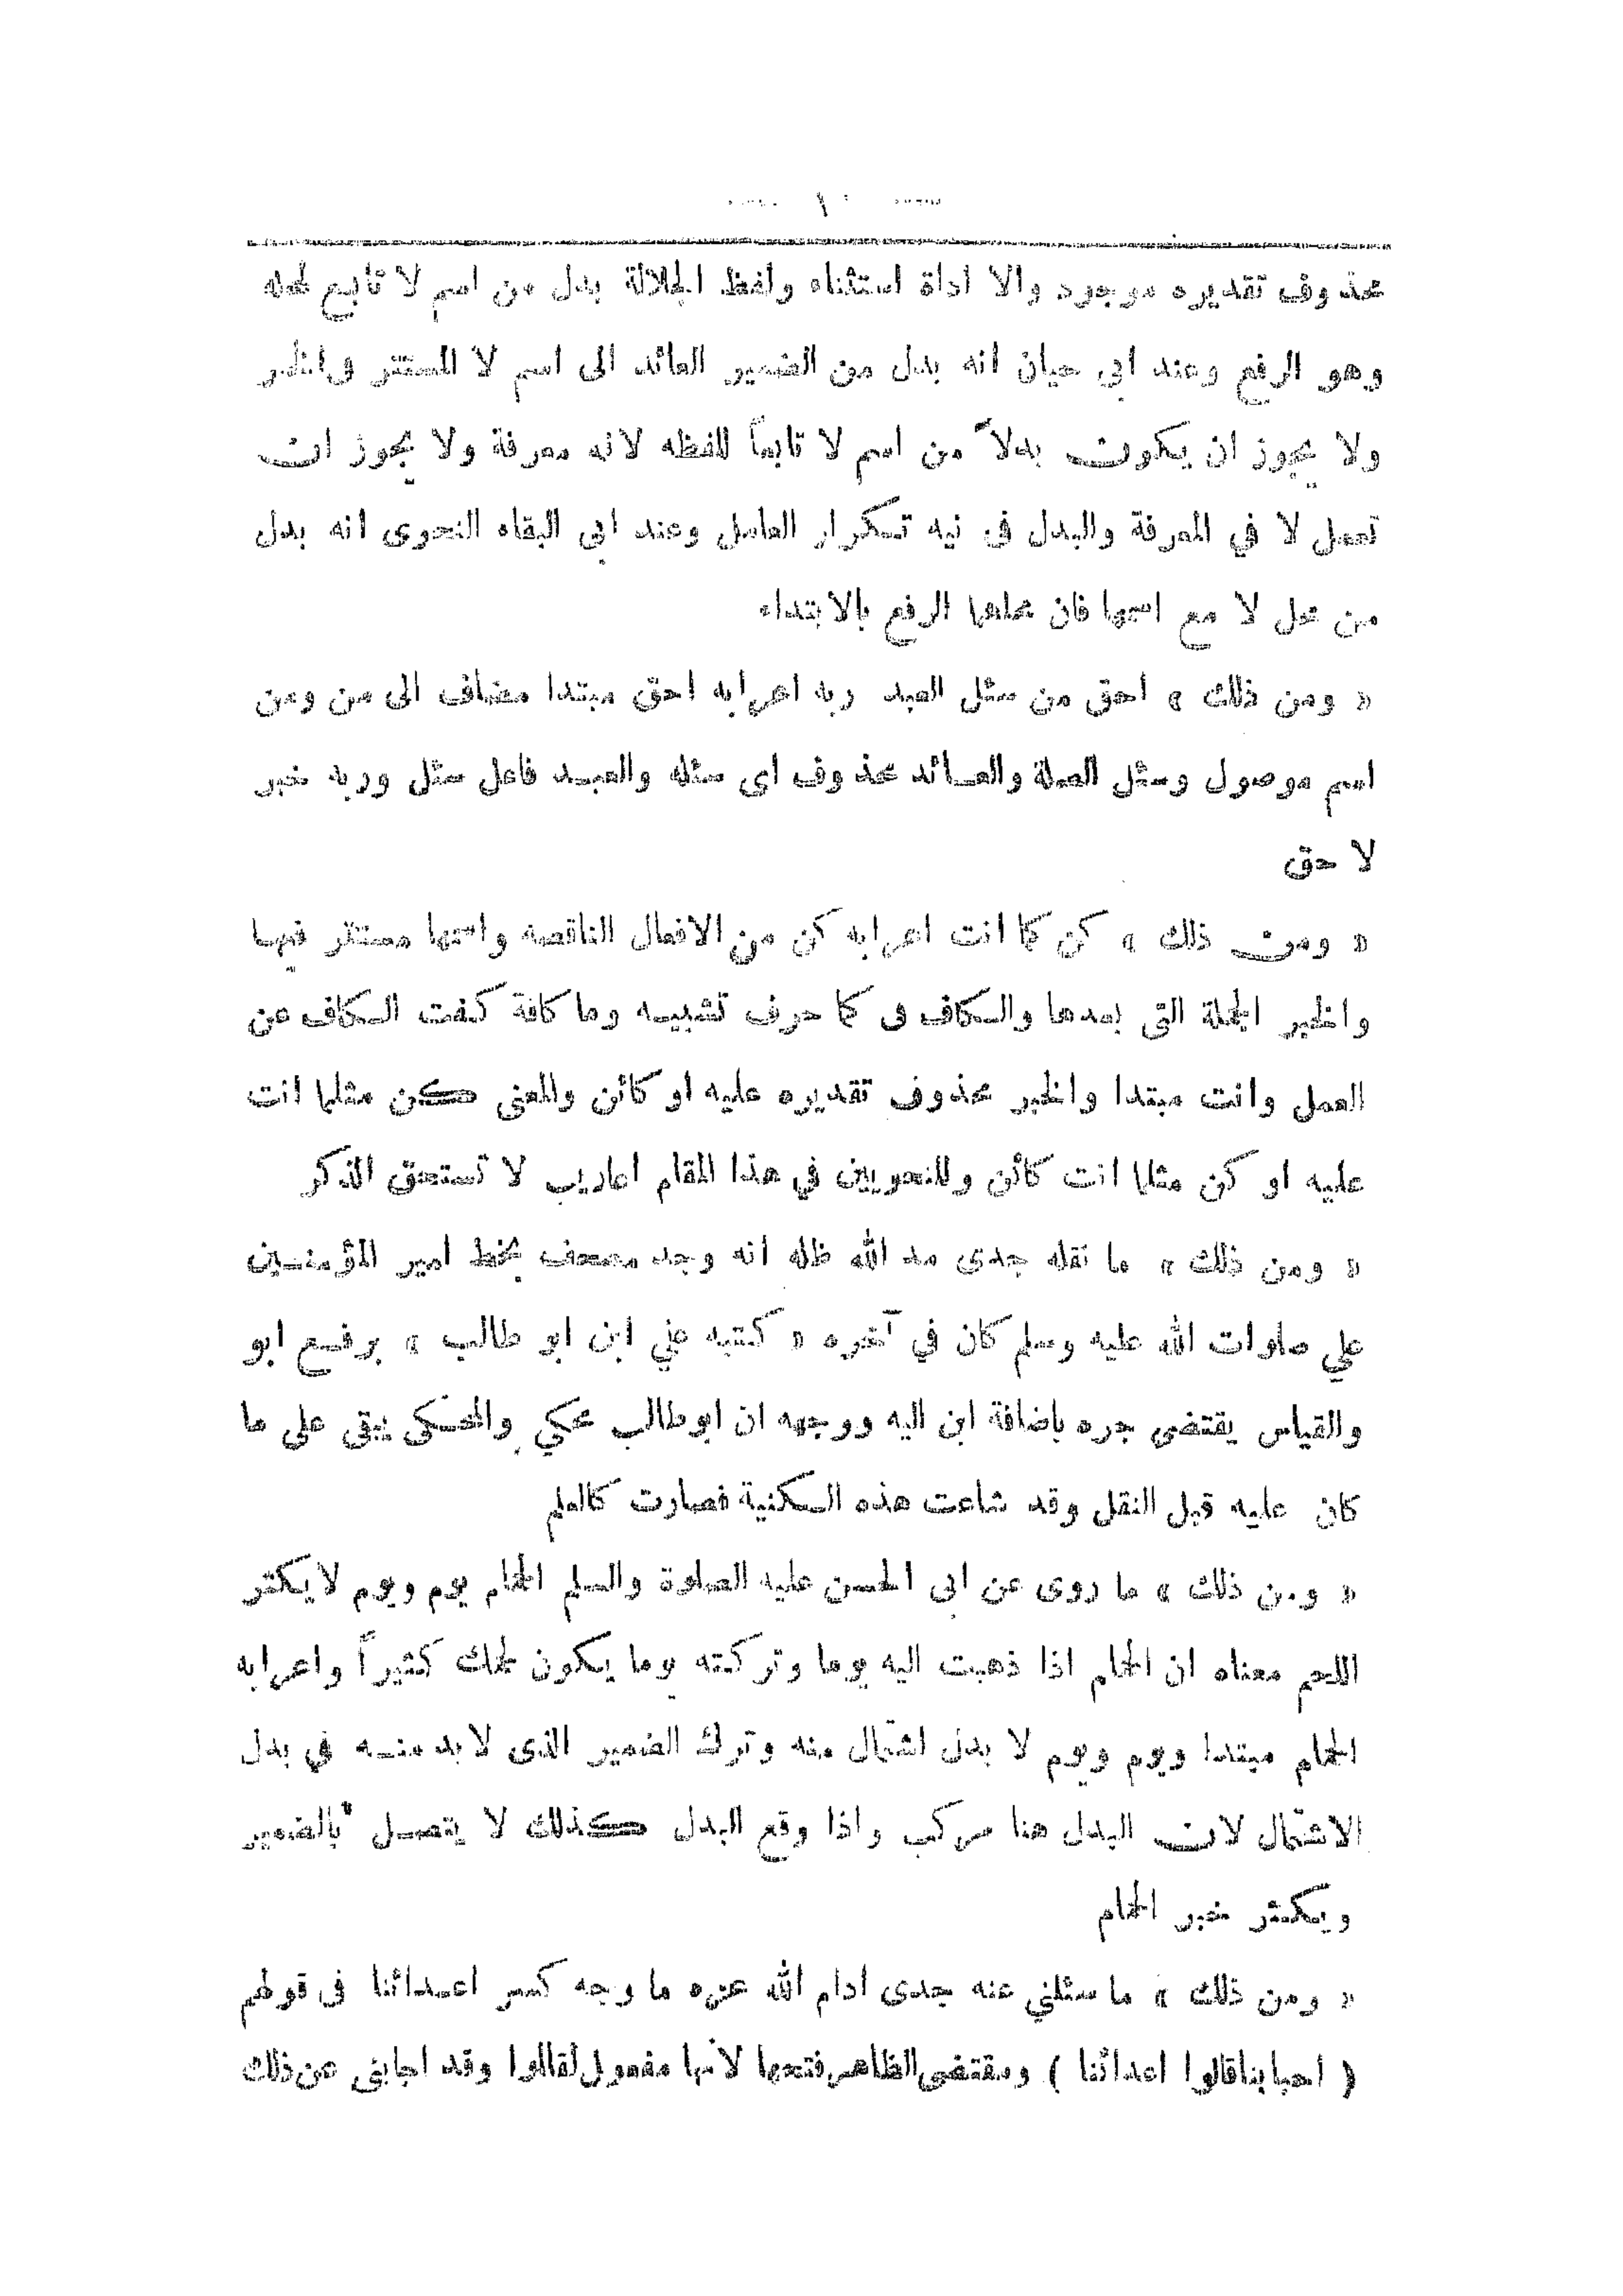 محذوف تقديره موجود والا اداة استثناء ولفظ الجلالة بدل من اسم لا تابع لمحله
وهو الرفع وعند ابي حيان انه بدل من الضمير العائد الى اسم لا المستتر في الخبر
ولا يجوز ان يكون بدلاً من اسم لا تابعاً للفظه لانه معرفة ولا يجوز ان
تعمل لا في المعرفة والبدل في نيه تكرار العامل وعند ابي البقاء النحوى انه بدل
من محل لا مع اسمها فان محلهما الرفع بالابتداء
« ومن ذلك » احق من سئل العبد ربه اعرابه احق مبتدا مضاف الى من ومن
اسم موصول وسئل الصلة والعائد محذوف اى سئله والعبد فاعل سئل وربه خبر
لاحق
« ومن ذلك » كن كما انت اعرابه كن من الافعال الناقصه واسمها مستتر فيها
والخبر الجملة التى بعدها والكاف فى كما حرف تشبيه وما كافة كفت الكاف عن
العمل وانت مبتدا والخبر محذوف تقديره عليه او كائن والمعنى كن مثلما انت
عليه او كن مثلما انت كائن وللنحويين في هذا المقام اعاريب لا تستحق الذكر
« ومن ذلك » ما نقله جدى مد الله ظله انه وجد مصحف بخط امير المؤمنين
علي صلوات الله عليه وسلم كان في آخره « كتبه علي ابن ابو طالب » برفع ابو
والقياس يقتضى جره باضافة ابن اليه ووجهه ان ابوطالب محكي والمحكى يبقى على ما
كان عليه قبل النقل وقد شاعت هذه الكنية فصارت كالعلم
« ومن ذلك » ما روى عن ابى الحسن عليه الصلوة والسلم الحمام يوم ويوم لا يكثر
اللحم معناه ان الحمام اذا ذهبت اليه يوما وتركته يوما يكون لحمك كثيراً واعرابه
الحمام مبتدا ويوم ويوم لا بدل اشتمال منه وترك الضمير الذى لابد منه في بدل
الاشتمال لان البدل هنا مركب واذا وقع البدل كذلك لا يتصل بالضمير
ويكثر خبر الحمام
« ومن ذلك » ما سئلني عنه جدى ادام الله عزه ما وجه كسر اعدائنا فى قولهم
( احبابنا قالوا اعدائنا ) ومقتضى الظاهر فتحها لانها مفعول لقالوا وقد اجابنى عن ذلك